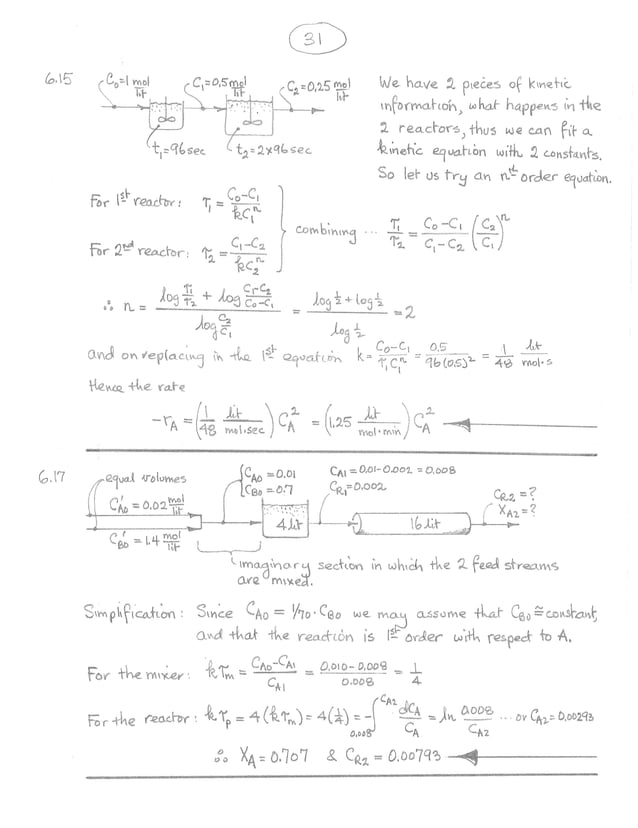 31
6.15
C₀=1 mol/lit
C₁=0,5 mol/lit
C₂=0,25 mol/lit
t₁=96sec
t₂=2×96sec
We have 2 pieces of kinetic
information, what happens in the
2 reactors, thus we can fit a
kinetic equation with 2 constants.
So let us try an nth order equation.
For 1st reactor: τ₁ = (C₀-C₁)/(kC₁ⁿ)
For 2nd reactor: τ₂ = (C₁-C₂)/(kC₂ⁿ)
combining ... τ₁/τ₂ = (C₀-C₁)/(C₁-C₂) (C₂/C₁)ⁿ
∴ n = (log τ₁/τ₂ + log (C₁-C₂)/(C₀-C₁))/(log C₂/C₁) = (log ½ + log ½)/(log ½) = 2
and on replacing in the 1st equation k = (C₀-C₁)/(τ₁C₁ⁿ) = 0.5/(96(0.5)²) = 1/48 lit/mol·s
Hence the rate
-rA = (1/48 lit/mol·sec) CA² = (1.25 lit/mol·min) CA²
6.17
equal volumes
C'A0 = 0.02 mol/lit
C'B0 = 1.4 mol/lit
{CA0 = 0.01
CB0 = 0.7
4 lit
CA1 = 0.01-0.002 = 0.008
CR1 = 0.002
16 lit
CR2 = ?
XA2 = ?
imaginary section in which the 2 feed streams
are mixed.
Simplification: Since CA0 = 1/70·CB0 we may assume that CB0 ≅ constant,
and that the reaction is 1st order with respect to A.
For the mixer: kτm = (CA0-CA1)/CA1 = (0.010-0.008)/0.008 = 1/4
For the reactor: kτp = 4(kτm) = 4(¼) = -∫0.008^CA2 dCA/CA = ln 0.008/CA2 ... or CA2 = 0.00293
∴ XA = 0.707 & CR2 = 0.00793